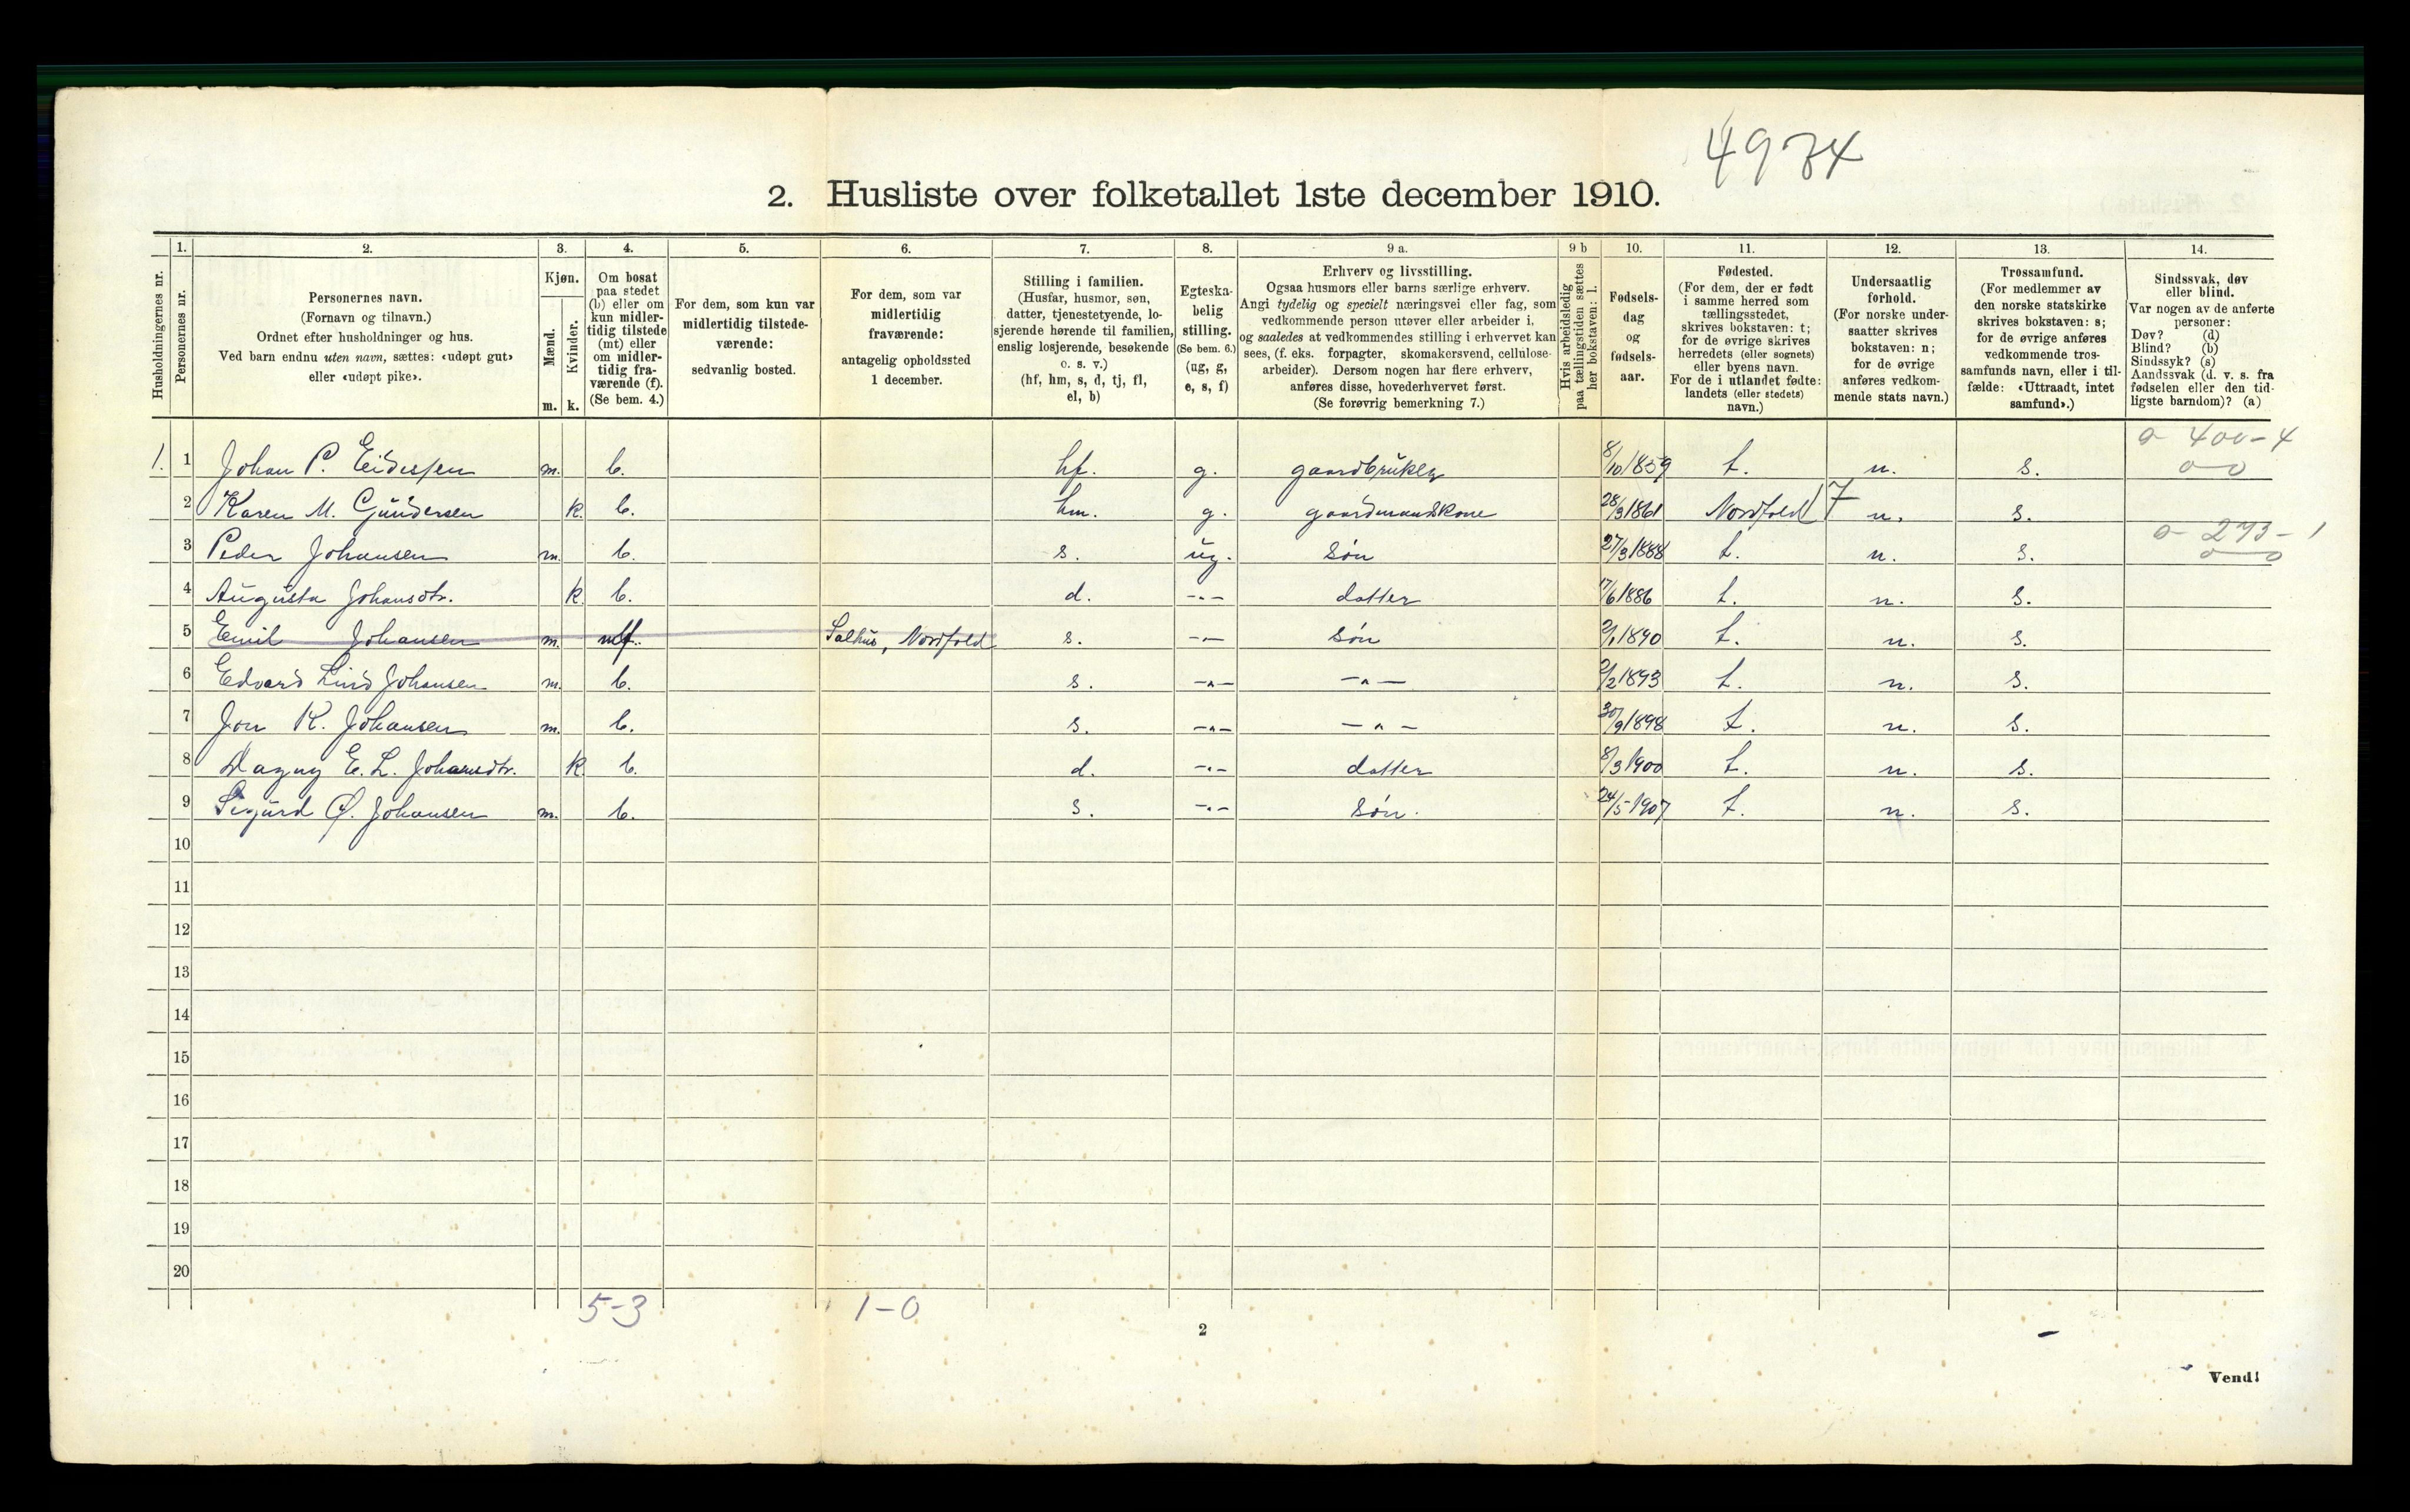 4934
2. Husliste over folketallet 1ste december 1910.
1. 2. 3. 4. 5. 6. 7. 8. 9 a. 9 b 10. 11. 12. 13. 14.
Husholdningernes nr.
Personernes nr.
Personernes navn.
(Fornavn og tilnavn.)
Ordnet efter husholdninger og hus.
Ved barn endnu uten navn, sættes: «udøpt gut»
eller «udøpt pike».
Kjøn.
Mænd.
Kvinder.
m. k.
Om bosat
paa stedet
(b) eller om
kun midler-
tidig tilstede
(mt) eller
om midler-
tidig fra-
værende (f).
(Se bem. 4.)
For dem, som kun var
midlertidig tilstede-
værende:
sedvanlig bosted.
For dem, som var
midlertidig
fraværende:
antagelig opholdssted
1 december.
Stilling i familien.
(Husfar, husmor, søn,
datter, tjenestetyende, lo-
sjerende hørende til familien,
enslig losjerende, besøkende
o. s. v.)
(hf, hm, s, d, tj, fl,
el, b)
Egteska-
belig
stilling.
(Se bem. 6.)
(ug, g,
e, s, f)
Erhverv og livsstilling.
Ogsaa husmors eller barns særlige erhverv.
Angi tydelig og specielt næringsvei eller fag, som
vedkommende person utøver eller arbeider i,
og saaledes at vedkommendes stilling i erhvervet kan
sees, (f. eks. forpagter, skomakersvend, cellulose-
arbeider). Dersom nogen har flere erhverv,
anføres disse, hovederhvervet først.
(Se forøvrig bemerkning 7.)
Hvis arbeidsledig
paa tællingstiden sættes
her bokstaven: l.
Fødsels-
dag
og
fødsels-
aar.
Fødested.
(For dem, der er født
i samme herred som
tællingsstedet,
skrives bokstaven: t;
for de øvrige skrives
herredets (eller sognets)
eller byens navn.
For de i utlandet fødte:
landets (eller stedets)
navn.)
Undersaatlig
forhold.
(For norske under-
saatter skrives
bokstaven: n;
for de øvrige
anføres vedkom-
mende stats navn.)
Trossamfund.
(For medlemmer av
den norske statskirke
skrives bokstaven: s;
for de øvrige anføres
vedkommende tros-
samfunds navn, eller i til-
fælde: «Uttraadt, intet
samfund».)
Sindssvak, døv
eller blind.
Var nogen av de anførte
personer:
Døv? (d)
Blind? (b)
Sindssyk? (s)
Aandssvak (d. v. s. fra
fødselen eller den tid-
ligste barndom)? (a)
0 - 400 - 4
1. 1 Johan P. Eidessen m. b. hf. g. gaardbruker 8/10 1859 t. n. s. 0 0
2 Karen M. Gundersen k. b. hm. g. gaardmandskone 28/3 1861 Nordfold 7 n. s.
0 - 273 - 1
3 Peder Johansen m. b. s. ug. søn 27/3 1888 t. n. s. 0 0
4 Augusta Johansdtr. k. b. d. -"- datter 17/6 1886 t. n. s.
5 Emil Johansen m. mf. Salhus, Nordfold s. -"- søn 2/1 1890 t. n. s.
6 Edvard Lind Johansen m. b. s. -"- -"- 2/2 1893 t. n. s.
7 Jon K. Johansen m. b. s. -"- -"- 30/9 1898 t. n. s.
8 Dagny E. L. Johansdtr. k. b. d. -"- datter 8/3 1900 t. n. s.
9 Sigurd Ø. Johansen m. b. s. -"- søn. 24/5 1907 t. n. s.
10
11
12
13
14
15
16
17
18
19
20
5-3 1-0
2
Vend!